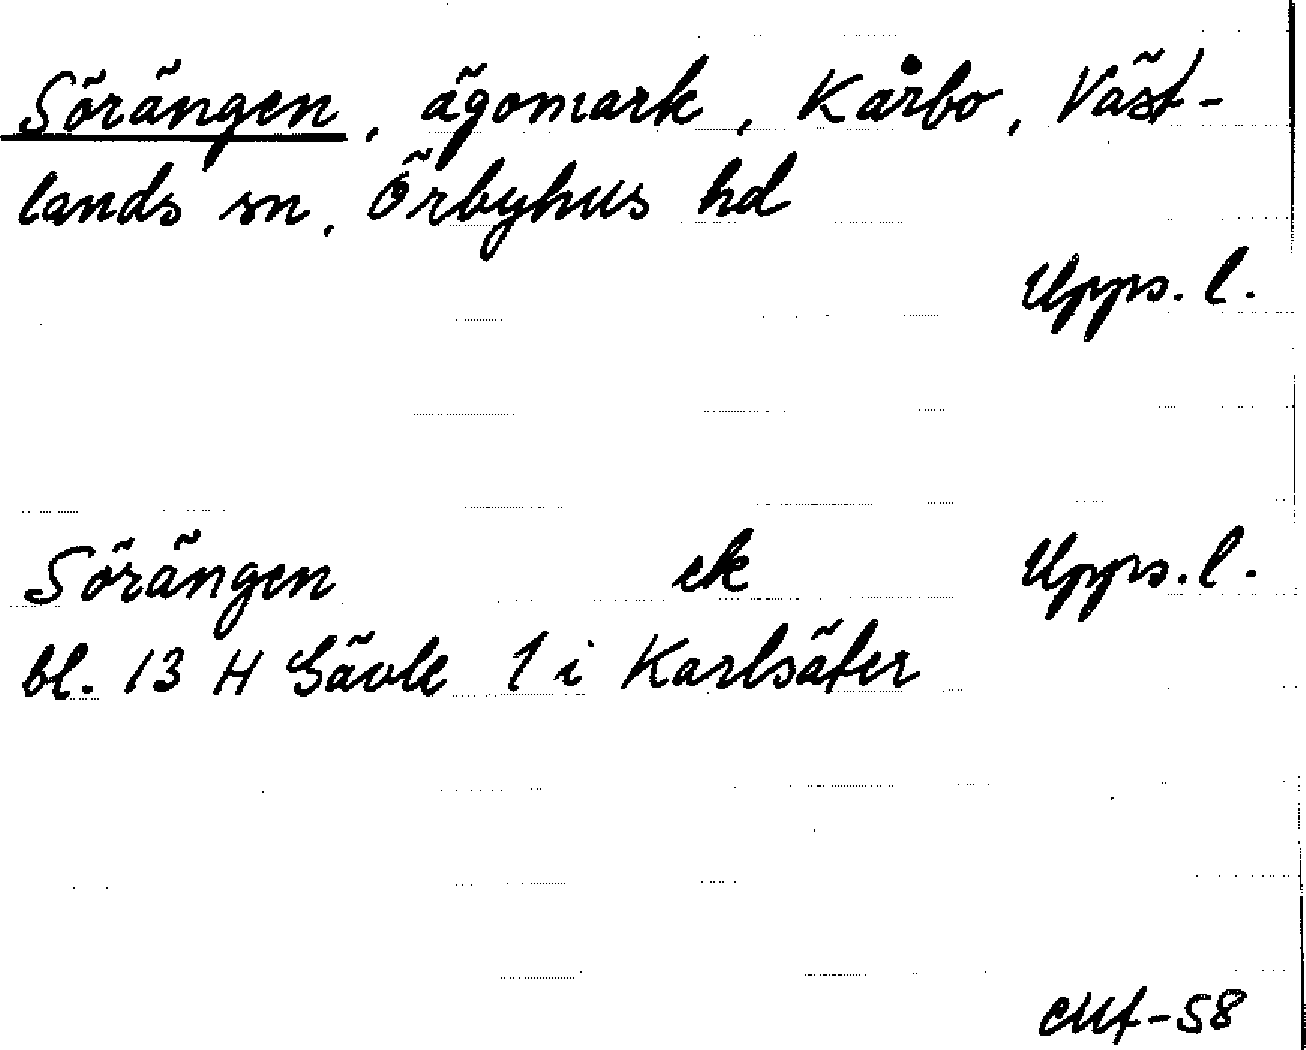 Sörängen, ägomark, Kårbo, Väst-
lands sn, Örbyhus hd
Upps. l.
Sörängen ek Upps. l.
bl. 13 H Gävle 1 i Karlsäter
-58